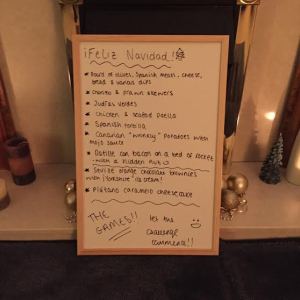 ¡Feliz Navidad!
* Board of olives, Spanish meats, cheese,
bread & various dips
* Chorizo & prawn skewers
* Judías verdes
* Chicken & seafood paella
* Spanish tortilla
* Canarian "wrinkly" potatoes with
mojo sauce
* Datille con bacon on a bed of rocket
- with a hidden nut
* Seville orange chocolate brownies
with "Yorkshire" ice cream!
* Platano caramelo cheesecake
THE
GAMES!!
let the
challenge
commence!!